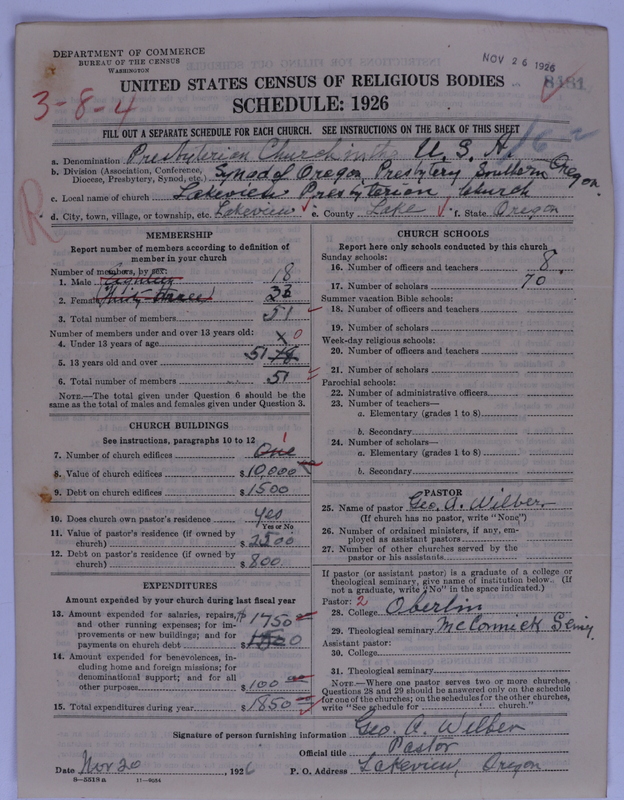 DEPARTMENT OF COMMERCE
BUREAU OF THE CENSUS
WASHINGTON
NOV 26 1926
8181
UNITED STATES CENSUS OF RELIGIOUS BODIES
3-8-4
SCHEDULE: 1926
FILL OUT A SEPARATE SCHEDULE FOR EACH CHURCH. SEE INSTRUCTIONS ON THE BACK OF THIS SHEET
a. Denomination Presbyterian Church in the U. S. A.
b. Division (Association, Conference, Diocese, Presbytery, Synod, etc.) Synod of Oregon Presbytery Southern Oregon.
c. Local name of church Lakeview Presbyterian Church
d. City, town, village, or township, etc. Lakeview e. County Lake f. State Oregon
R
MEMBERSHIP
Report number of members according to definition of
member in your church
Number of members, by sex:
1. Male 18
2. Female 33
3. Total number of members 51
Number of members under and over 13 years old:
4. Under 13 years of age 0
5. 13 years old and over 51
6. Total number of members 51
NOTE.—The total given under Question 6 should be
same as the total of males and females given under Question 3.
CHURCH BUILDINGS
See instructions, paragraphs 10 to 12
7. Number of church edifices One 1
8. Value of church edifices $10,000
9. Debt on church edifices $1500
10. Does church own pastor's residence yes
Yes or No
11. Value of pastor's residence (if owned by
church) $2500
12. Debt on pastor's residence (if owned by
church) $800
EXPENDITURES
Amount expended by your church during last fiscal year
13. Amount expended for salaries, repairs, $1750
and other running expenses; for im-
provements or new buildings; and for
payments on church debt
14. Amount expended for benevolences, in-
cluding home and foreign missions; for
denominational support; and for all
other purposes $100
15. Total expenditures during year $1850
CHURCH SCHOOLS
Report here only schools conducted by this church
Sunday schools:
16. Number of officers and teachers 8
17. Number of scholars 70
Summer vacation Bible schools:
18. Number of officers and teachers
19. Number of scholars
Week-day religious schools:
20. Number of officers and teachers
21. Number of scholars
Parochial schools:
22. Number of administrative officers
23. Number of teachers—
a. Elementary (grades 1 to 8)
b. Secondary
24. Number of scholars—
a. Elementary (grades 1 to 8)
b. Secondary
PASTOR
25. Name of pastor Geo. A. Wilber
(If church has no pastor, write "None")
26. Number of ordained ministers, if any, em-
ployed as assistant pastors
27. Number of other churches served by the
pastor or his assistants
If pastor (or assistant pastor) is a graduate of a college or
theological seminary, give name of institution below. (If
not a graduate, write "No" in the space indicated.)
Pastor: 2
28. College Oberlin
29. Theological seminary McCormick Seminy
Assistant pastor:
30. College
31. Theological seminary
NOTE.—Where one pastor serves two or more churches,
Questions 28 and 29 should be answered only on the schedule
for one of the churches; on the schedules for the other churches,
write "See schedule for church."
Signature of person furnishing information Geo. A. Wilber
Official title Pastor
Date Nov 20, 1926 P. O. Address Lakeview, Oregon
8—5518a 11—9034